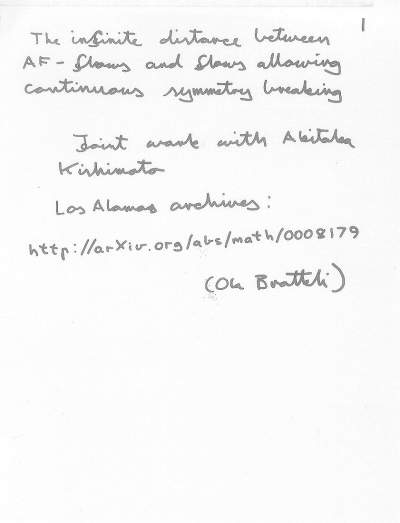 1
The infinite distance between
AF-flows and flows allowing
continuous symmetry breaking
Joint work with Akitaka
Kishimoto
Los Alamos archives:
http://arXiv.org/abs/math/0008179
(Ola Bratteli)